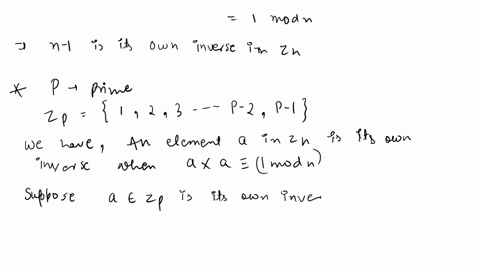 = 1 mod n
→ n-1 is its own inverse in Zn
* P → prime
Zp = { 1, 2, 3 --- P-2, P-1 }
We have, An element a in Zn is its own
inverse when a × a ≡ (1 mod n)
Suppose a ∈ Zp is its own inve